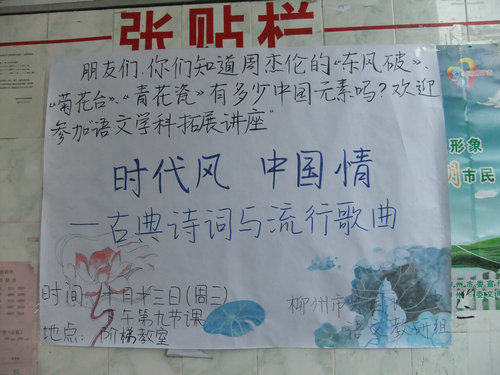 张贴栏
朋友们,你们知道周杰伦的“东风破”、
“菊花台”、“青花瓷”有多少中国元素吗?欢迎
参加“语文学科拓展讲座”
时代风 中国情
—古典诗词与流行歌曲
时间: 十月十三日(周三)
下午第九节课
地点: 阶梯教室
柳州市
语文教研组
形象
明市民